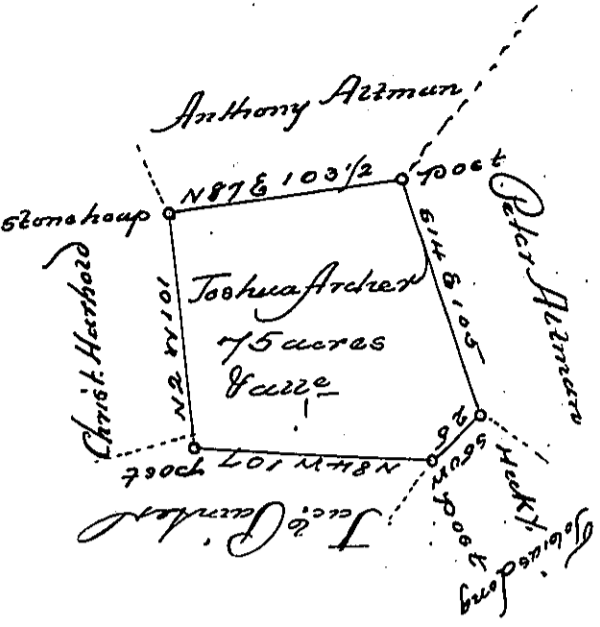 Anthony Altman
N87E 103 1/2
post
Stoneheap
Peter Altman
S14E 105
Joshua Archer
75 acres
& allce
Christ. Harhold
N2W 101
post
N84W 107
26
post
Hick'y
Tobias Long